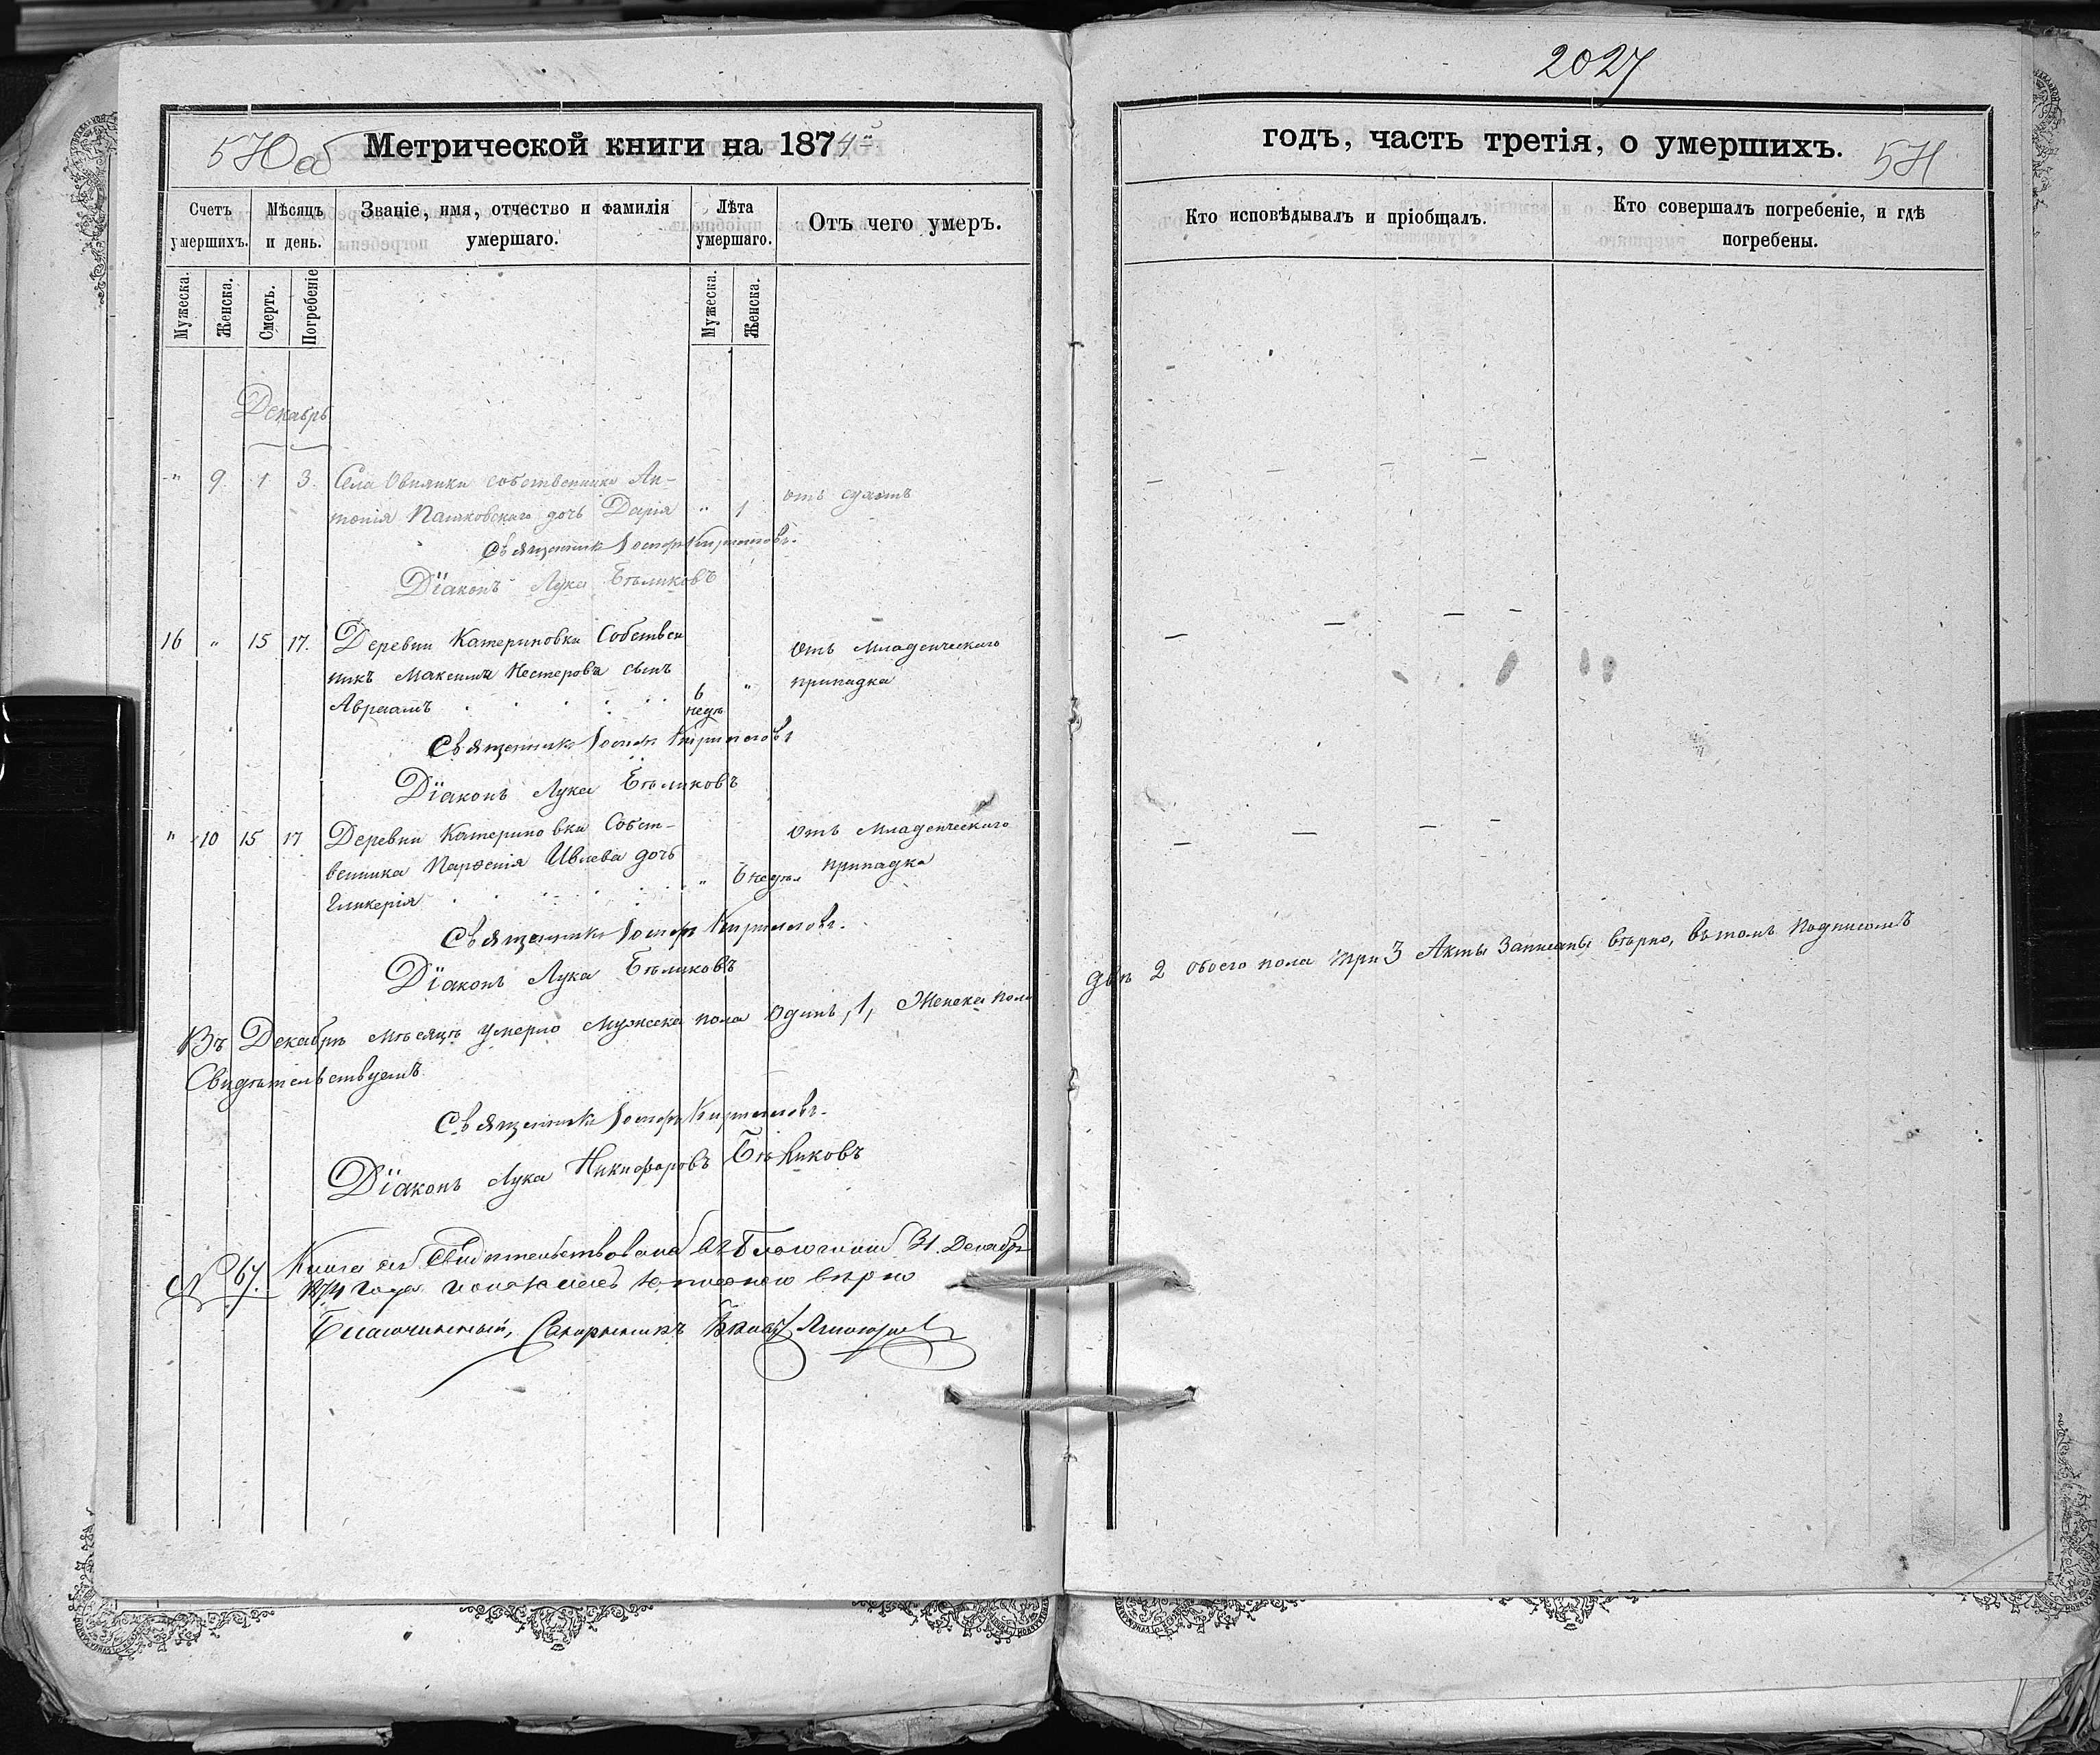 2027
Метрической книги на 1874й
годъ, часть третія, о умершихъ.
Счетъ умершихъ.
Мѣсяцъ и день.
Званіе, имя, отчество и фамилія умершаго.
Лѣта умершаго.
Отъ чего умеръ.
Кто исповѣдывалъ и пріобщалъ.
Кто совершалъ погребеніе, и гдѣ погребены.
Мужеска.
Женска.
Смерть.
Погребеніе
Мужеска.
Женска.
Декабрь
" 9. 1 3. Села собственника Ан-
тонія дочь Дарія " 1 отъ сухотъ
Священникъ Іосифъ Кирилловъ.
Діаконъ Лука Бѣликовъ
16 " 15 17. Деревни Катериновки Собствен
никъ Максима Нестерова сынъ
Авраамъ 6 недѣ " Отъ Младенческаго
припадка
Священникъ Іосифъ Кирилловъ
Діаконъ Лука Бѣликовъ
" 10 15 17 Деревни Катериновки Собст-
венника Парѳенія Ивлева дочь
Гликерія " 6 недѣл Отъ Младенческаго
припадка
Священникъ Іосифъ Кирилловъ.
Діаконъ Лука Бѣликовъ
Въ Декабрѣ мѣсяцѣ умерло Мужеска пола Одинъ, 1, Женска пола двѣ 2 обоего пола три 3 Акты Записаны вѣрно, въ томъ Подписомъ
Свидѣтельствуемъ
Священникъ Іосифъ Кирилловъ.
Діаконъ Лука Никифоровъ Бѣликовъ
№ 67. Книга сія Свидѣтельствована 31 Декабря
1874 года вѣрно
Благочинный, Священникъ